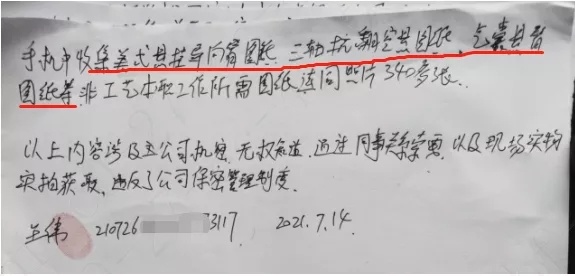 手机中收集美式挂导向臂图纸 三轴抗翻图纸、气囊
图纸等 非工艺本职工作所需图纸 照片340多张.
以上内容涉及公司机密 无权知道、通过同事关系索要、以及现场实物
实拍获取、违反了公司保密管理制度.
王伟 210726 3117 2021.7.14